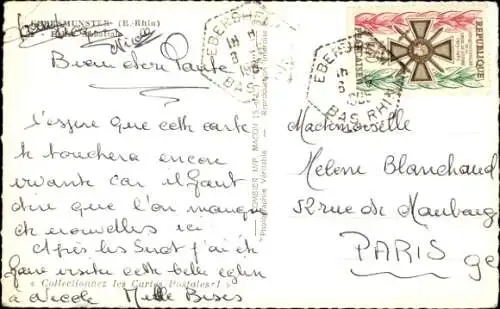 EBERSMUNSTER (B.-Rhin)
Nicole
EBERSHEIM
BAS RHIN
EBERSHEIM
BAS RHIN
REPUBLIQUE
Mademoiselle
Helene Blanchaud
52 rue de Maubeuge
PARIS 9e
J'espère que cette carte
te touchera encore
vivante car il faut
dire que l'on manque
de nouvelles ici
Après les j'ai été
faire visiter cette belle église
à Nicole Mille Bises
« Collectionnez les Cartes Postales! »
COMBIER IMP. MACON
"Photographie Véritable" - Reproduction